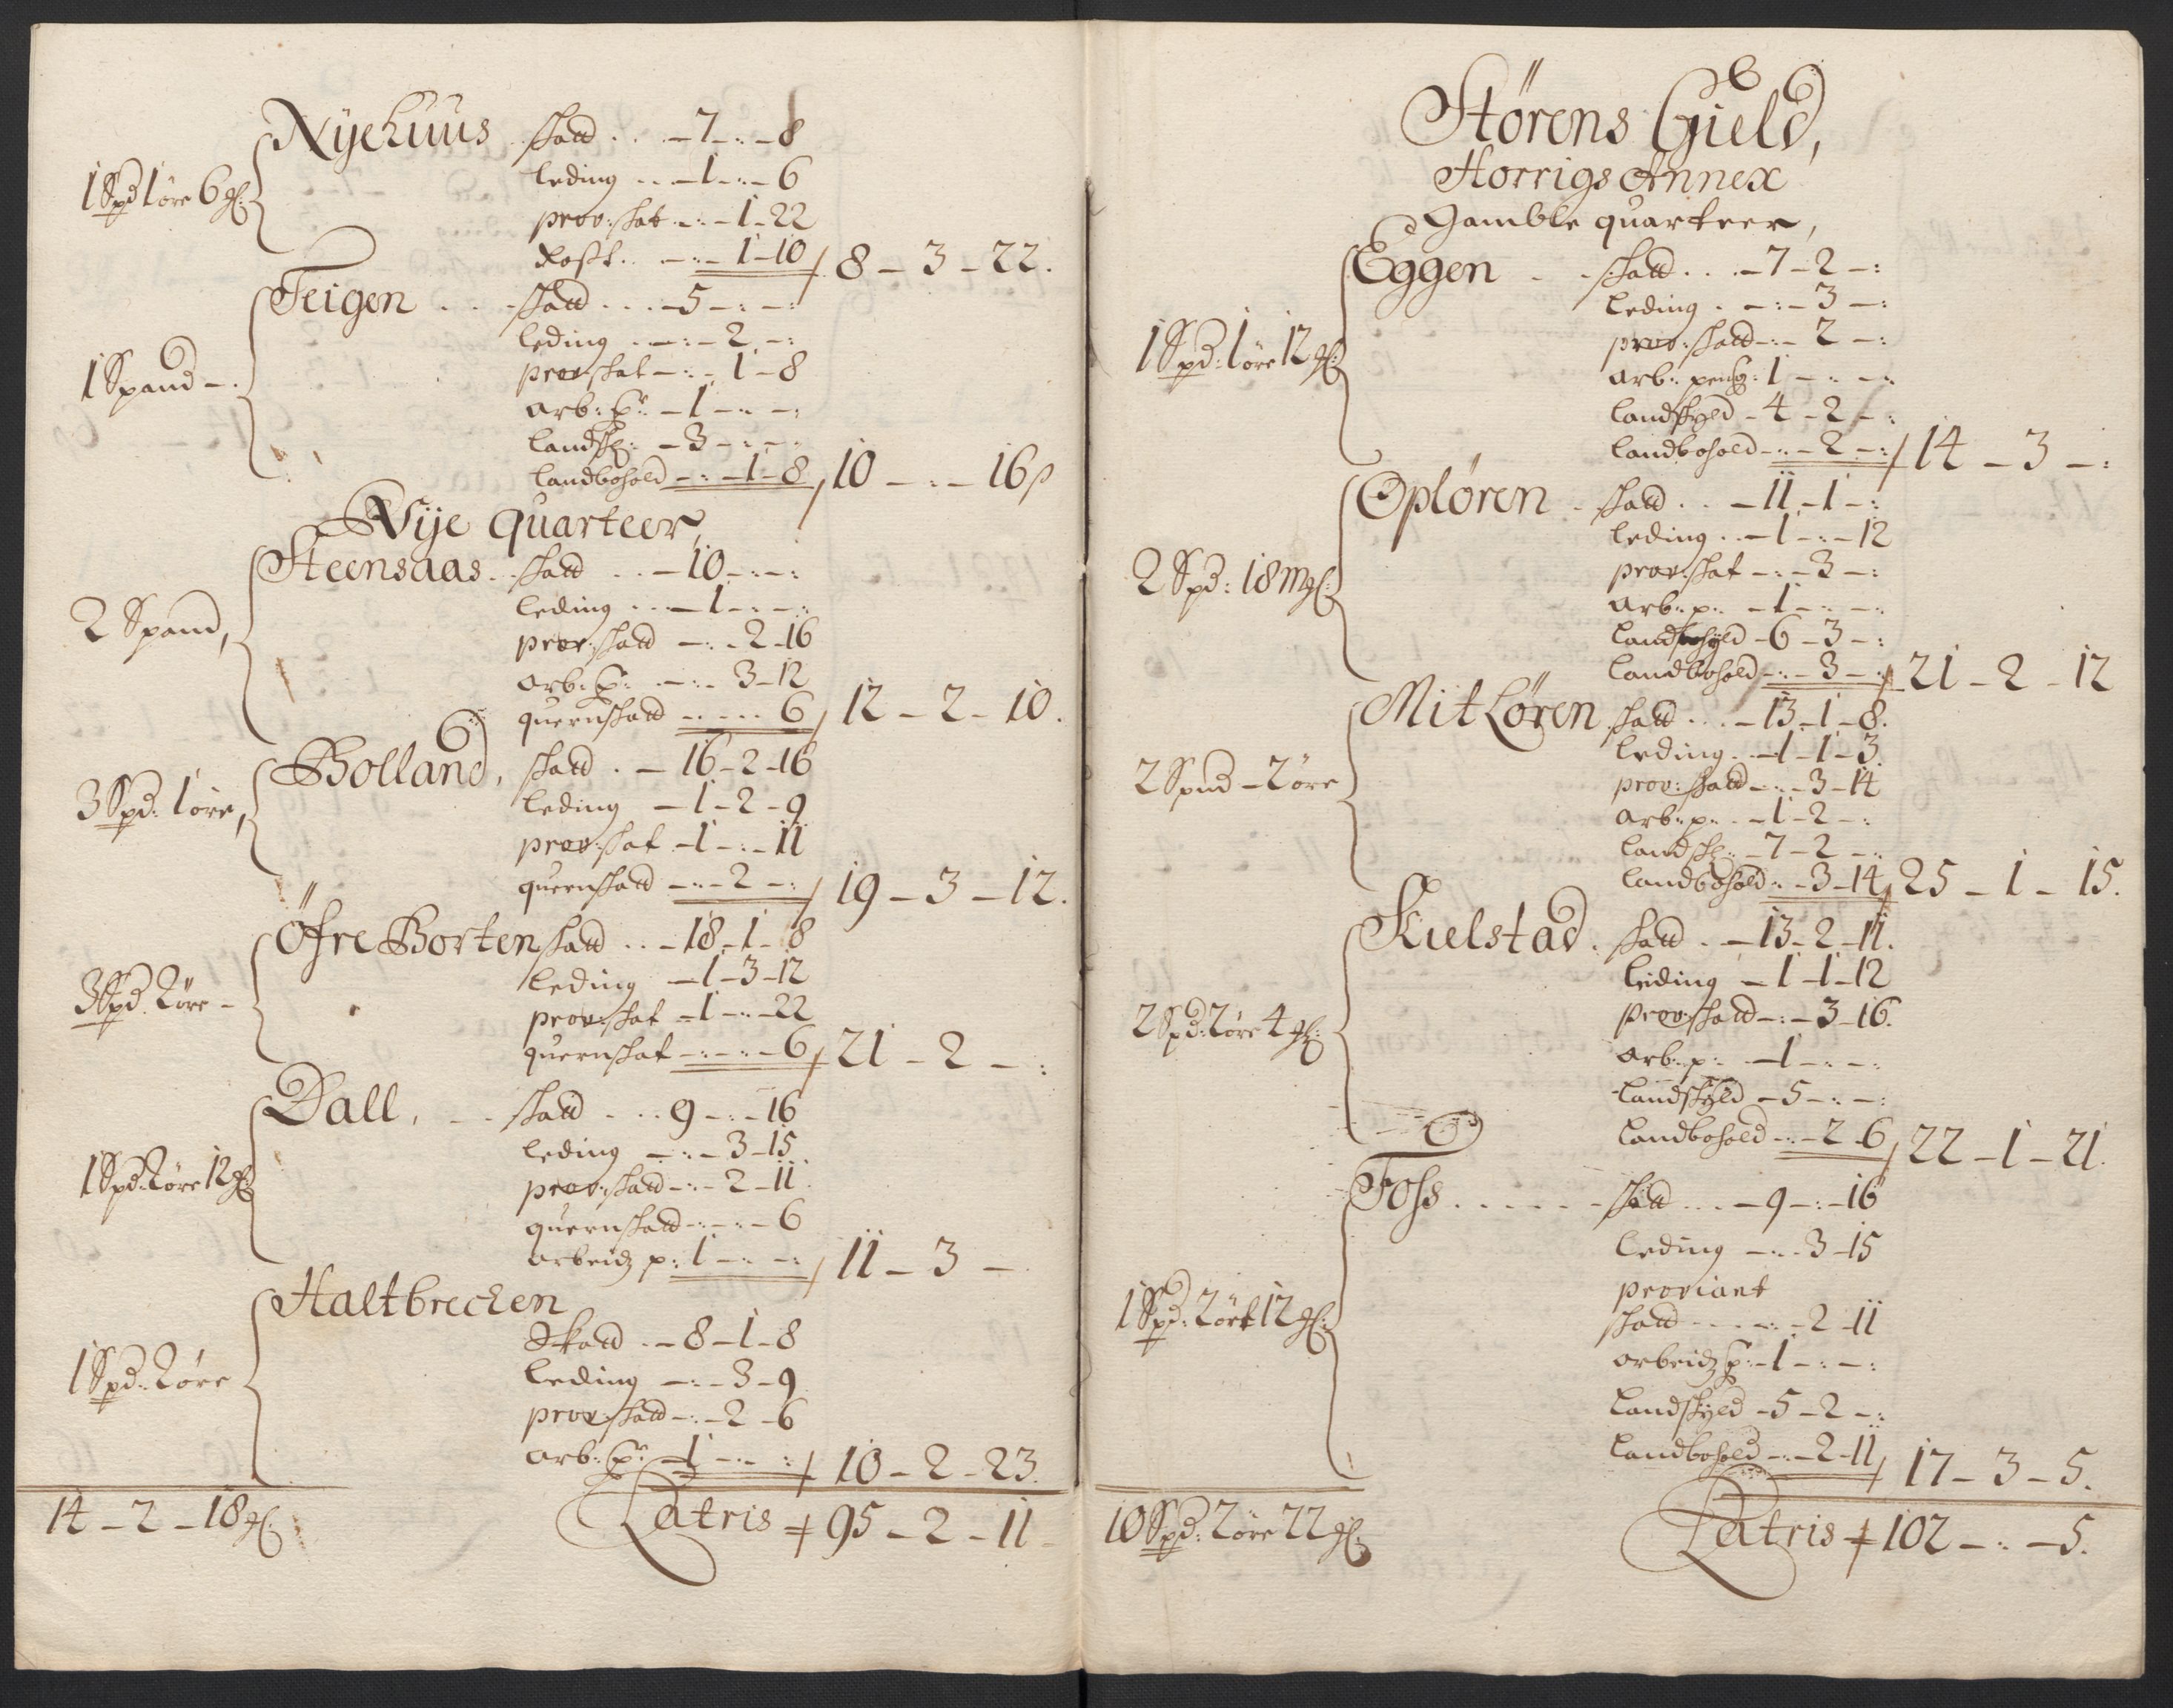 Nÿehuus skatt . . . – 7 – : – 8
1 Spd 1 øre 6 ml:
leding . . – 1 – : – 6
prov: skat – : – 1 – 22
Rost . . – : – 1 – 10 / 8 – 3 – 22.
Teigen . . . skatt . . . – 5 – : – :
1 Spand – .
leding . . – : – 2 – :
prov skat – : – 1 – 8
arb: p: – 1 – : – :
landsk: – 3 – : – :
landbohold – : – 1 – 8 / 10 – : – 16 ß
Nÿe quarteer,
Steensaas . . skatt . . – 10 – : – :
2 Spand,
leding . . – 1 – : – :
prov: skatt – : – 2 – 16
arb: p: – : – 3 – 12
quernskatt – : – : – 6 / 12 – 2 – 10.
Bolland, skatt . – 16 – 2 – 16
3 Spd: 1 øre,
leding – 1 – 2 – 9
prov: skat – 1 – : – 11
quernskatt – : – 2 – : / 19 – 3 – 12.
Öfre Borten skatt . . – 18 – 1 – 8
3 Spd. 2 øre –
leding – 1 – 3 – 12
prov: skat – 1 – : – 22
quernskat – : – : – 6 / 21 – 2 – :
Dall, . – . skatt . . . 9 – : – 16
1 Spd: 2 øre 12 ml:
leding – : – 3 – 15
prov: skatt – : – 2 – 11
quernskatt – : – : – 6
arbeidz p: 1 – : – : / 11 – 3 – .
Haltbrecken
Skatt . – 8 – 1 – 8
1 Spd: 2 øre
leding – : – 3 – 9
prov: skatt – : – 2 – 6
arb: p: – 1 – : – : / 10 – 2 – 23.
14 – 2 – 18 ml:
Latris + 95 – 2 – 11 –
Störens Gield,
Horrigs Annex
Gamble quarteer,
Eggen . – skatt . . . – 7 – 2 – :
leding . – : – 3 – :
1 Spd: 1 øre 12 ml:
prov: skatt – : – 2 – :
arb: peng: 1 – : – :
landskyld – 4 – 2 – :
landbohold – : – 2 – : / 14 – 3 – :
Oplören . skatt . . – 11 – 1 – :
leding . . – 1 – : – 12
2 Spd: 18 ml:
prov: skat – : – 3 – :
arb: p: – 1 – : – :
landskyld – 6 – 3 – :
landbohold – : – 3 – : / 21 – 2 – 12
Mitlören skatt . . . – 13 – 1 – 8.
leding . – 1 – 1 – 3.
2 Spnd – 2 øre
prov: skatt – : – 3 – 14
arb: p: . – 1 – 2 – :
landsk: – 7 – 2 – :
landbohold : – 3 – 14 / 25 – 1 – 15.
Kielstad . skatt . – 13 – 2 – 11.
leiding – 1 – 1 – 12
2 Spd: 2 øre 4 ml:
Prov: skatt – : – 3 – 16.
arb: p: – 1 – : – :
landskyld – 5 – : – :
landbohold – : – 2 – 6 / 22 – 1 – 21.
Foss . . . . . – skatt . . . – 9 – : – 16
leding – : – 3 – 15
proviant
1 Spd: 2 öre 12 ml:
skatt – – – : – 2 – 11
arbeidz p: – 1 – : – :
Landskyld – 5 – 2 – :
landbohold – : – 2 – 11 / 17 – 3 – 5.
10 Spd: 2 øre 22 ml:
Latris + 102 – : – 5.